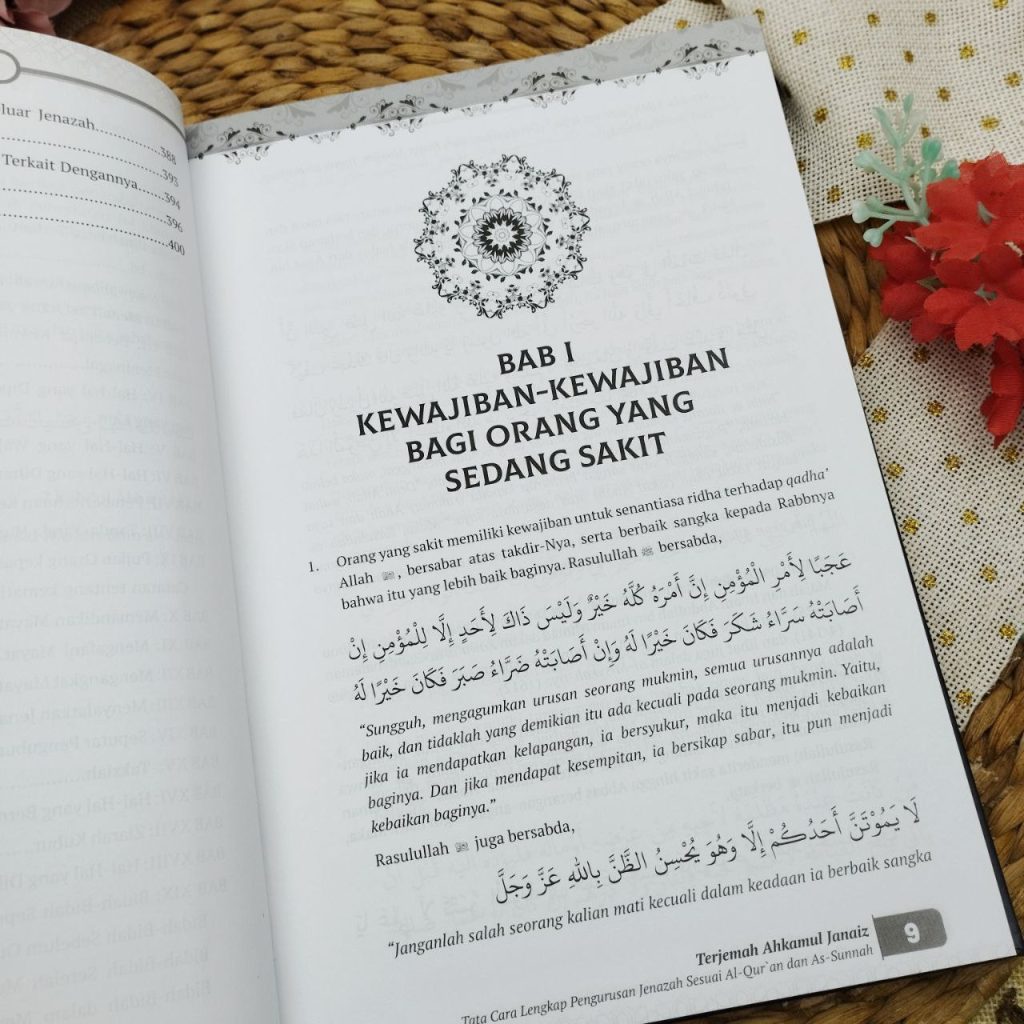 luar Jenazah..........388
..........393
Terkait Dengannya..........394
..........396
..........400
BAB I
KEWAJIBAN-KEWAJIBAN
BAGI ORANG YANG
SEDANG SAKIT
1. Orang yang sakit memiliki kewajiban untuk senantiasa ridha terhadap qadha'
Allah ﷻ, bersabar atas takdir-Nya, serta berbaik sangka kepada Rabbnya
bahwa itu yang lebih baik baginya. Rasulullah ﷺ bersabda,
عَجَبًا لِأَمْرِ الْمُؤْمِنِ إِنَّ أَمْرَهُ كُلَّهُ خَيْرٌ وَلَيْسَ ذَاكَ لِأَحَدٍ إِلَّا لِلْمُؤْمِنِ إِنْ
أَصَابَتْهُ سَرَّاءُ شَكَرَ فَكَانَ خَيْرًا لَهُ وَإِنْ أَصَابَتْهُ ضَرَّاءُ صَبَرَ فَكَانَ خَيْرًا لَهُ
“Sungguh, mengagumkan urusan seorang mukmin, semua urusannya adalah
baik, dan tidaklah yang demikian itu ada kecuali pada seorang mukmin. Yaitu,
jika ia mendapatkan kelapangan, ia bersyukur, maka itu menjadi kebaikan
baginya. Dan jika mendapat kesempitan, ia bersikap sabar, itu pun menjadi
kebaikan baginya.”
Rasulullah ﷺ juga bersabda,
لَا يَمُوْتَنَّ أَحَدُكُمْ إِلَّا وَهُوَ يُحْسِنُ الظَّنَّ بِاللهِ عَزَّ وَجَلَّ
“Janganlah salah seorang kalian mati kecuali dalam keadaan ia berbaik sangka
Terjemah Ahkamul Janaiz
Tata Cara Lengkap Pengurusan Jenazah Sesuai Al-Qur`an dan As-Sunnah
9